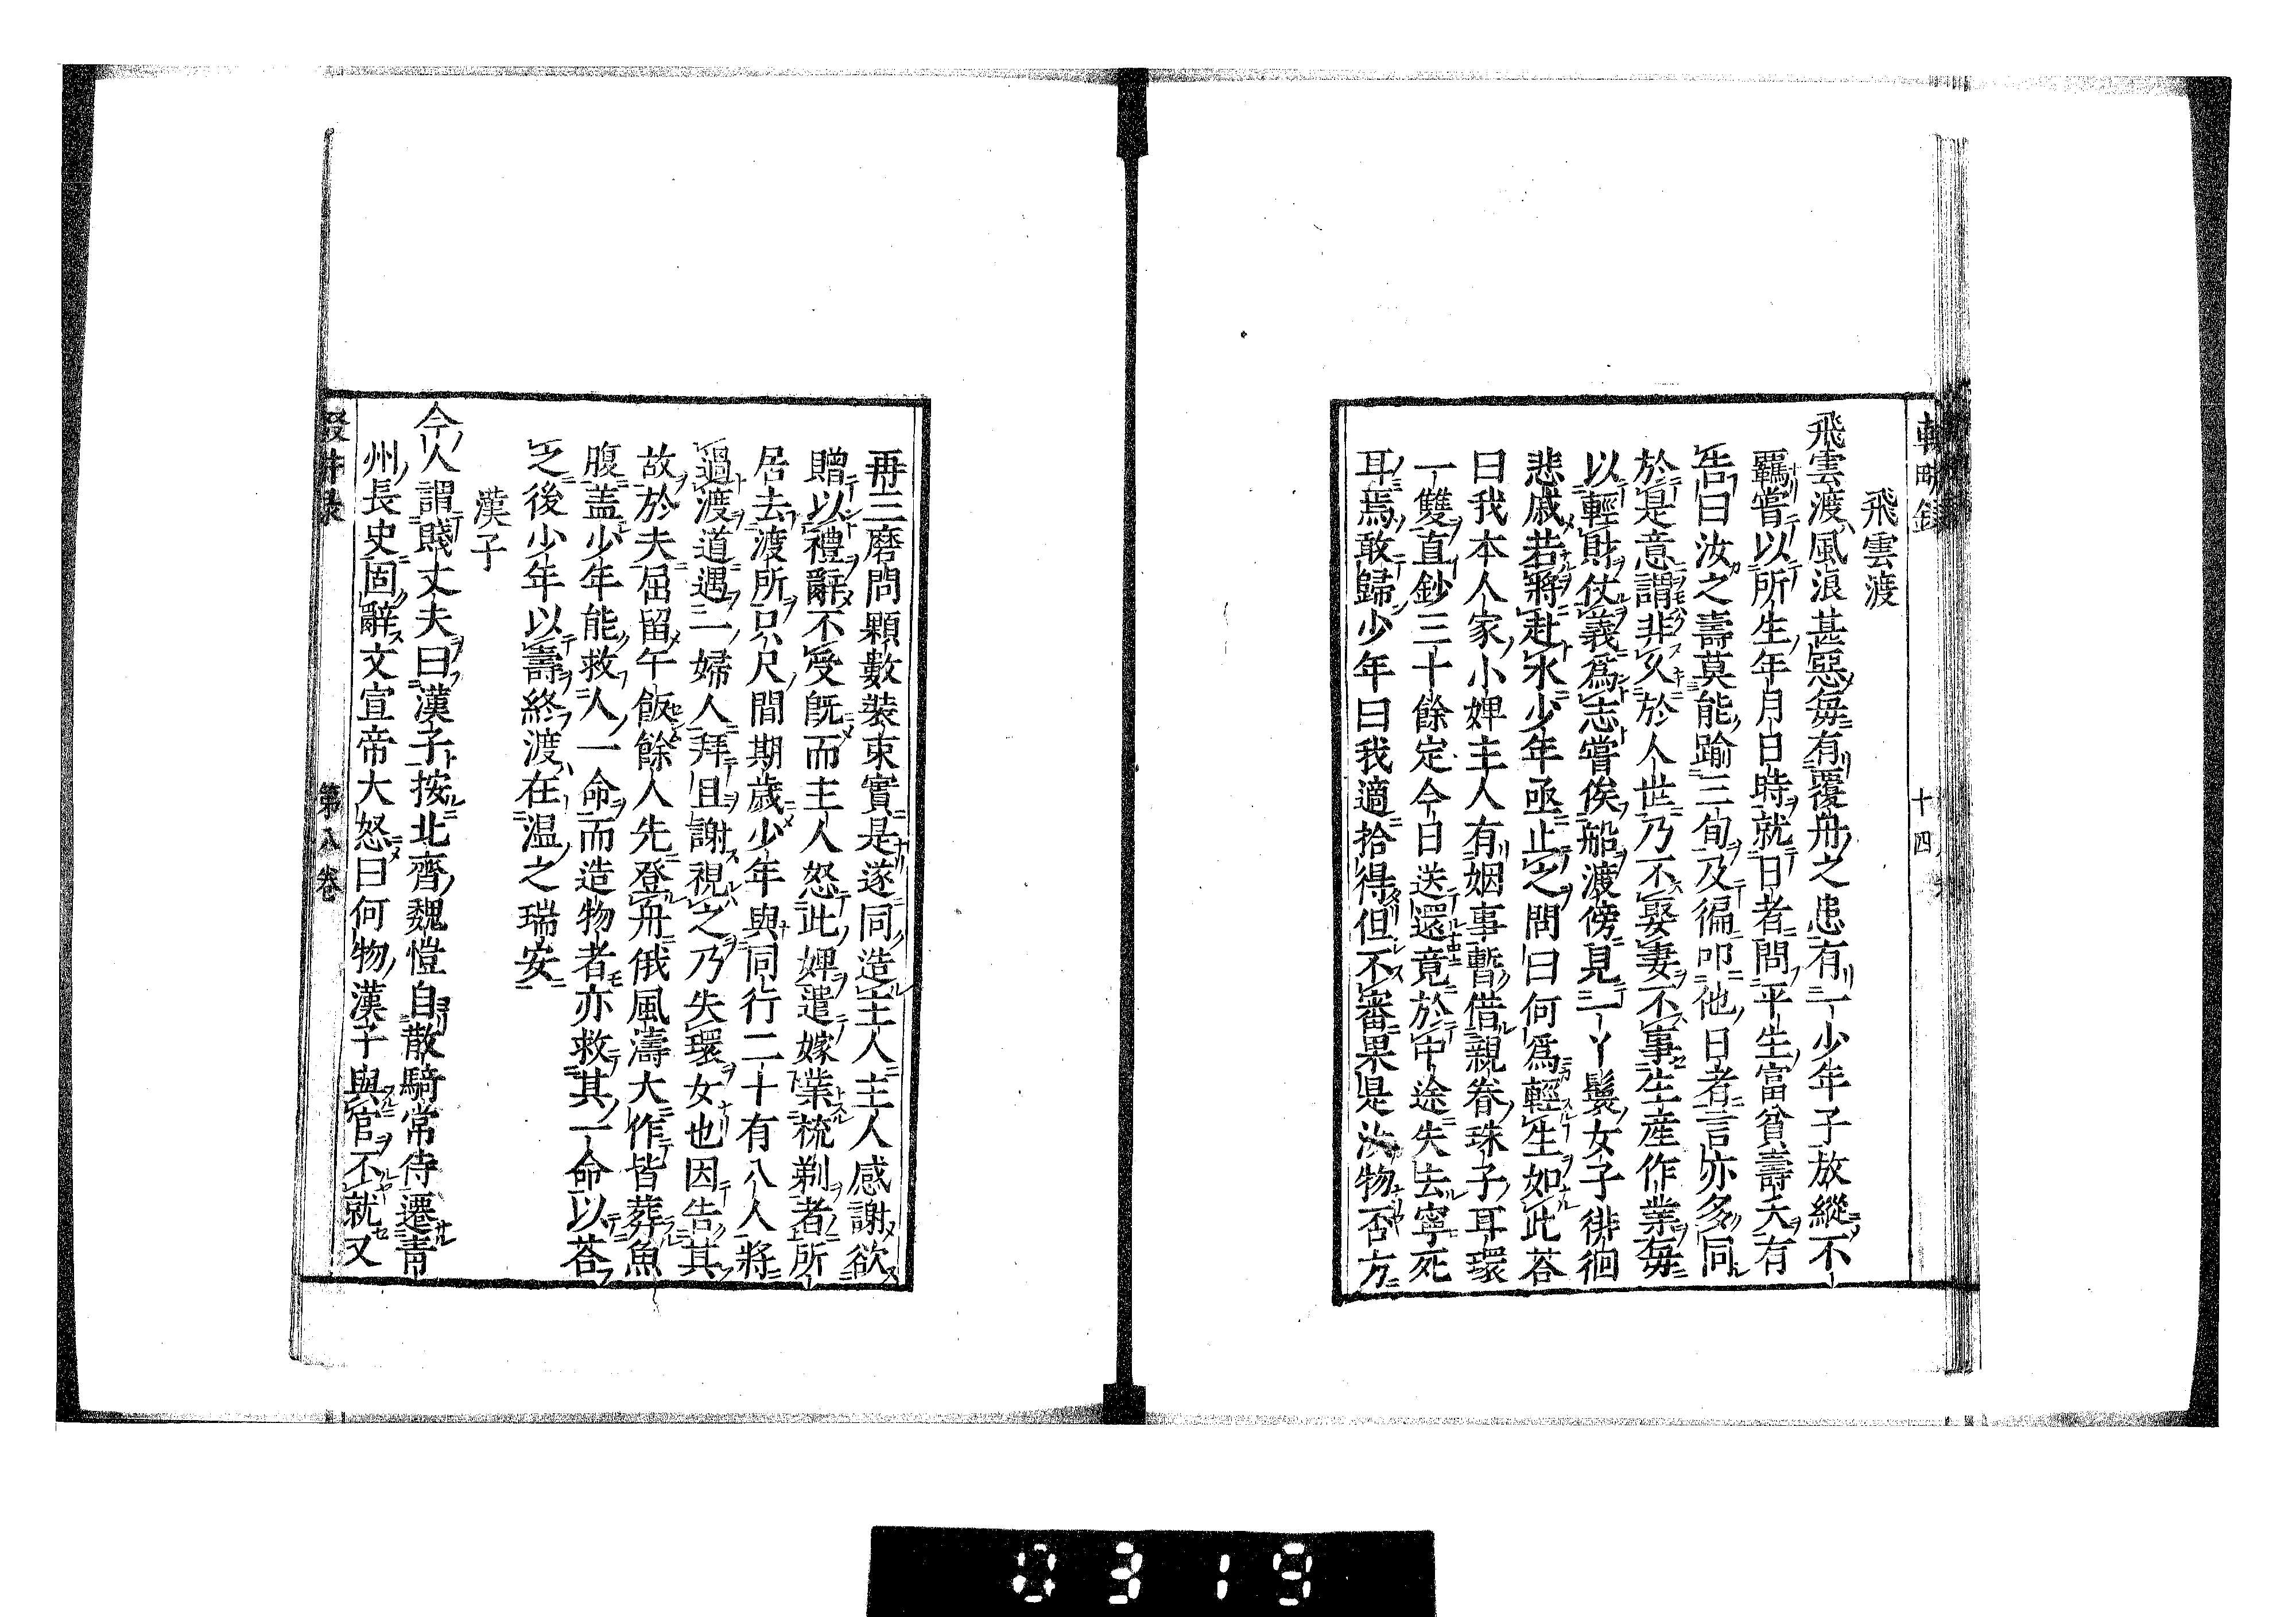 飛雲渡
飛雲渡風浪甚惡毎有覆舟之患有一少年子放縱不
羈嘗以所生年月日時就日者問平生富貧壽夭有
告曰汝之壽莫能踰三旬及徧叩他日者言亦多同
於是意謂非久於人世乃不娶妻不事生産作業毎
以輕財仗義爲志嘗俟船渡傍見一丫鬟女子徘徊
悲戚若將赴水少年亟止之問曰何爲輕生如此荅
曰我本人家小婢主人有姻事暫借親眷珠子耳環
一雙直鈔三十餘定今日送還竟於中途失去寧死
耳焉敢歸少年曰我適拾得但不審果是汝物否方
十四
再三磨問顆數裝束實是遂同造主人主人感謝欲
贈以禮辭不受既而主人怒此婢遣嫁業梳剃者所
居去渡所只尺間期歲少年與同行二十有八人將
過渡道遇一婦人拜且謝視之乃失環女也因告其
故於夫屈留午飯餘人先登舟俄風濤大作皆葬魚
腹盖少年能救人一命而造物者亦救其一命以荅
之後少年以壽終渡在温之瑞安
漢子
今人謂賤丈夫曰漢子按北齊魏愷自散騎常侍遷青
州長史固辭文宣帝大怒曰何物漢子與官不就又
第八卷
0319